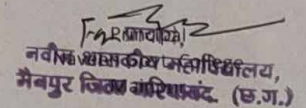 नवीन शासकीय महाविद्यालय,
मैनपुर जिला गरियाबंद (छ.ग.)